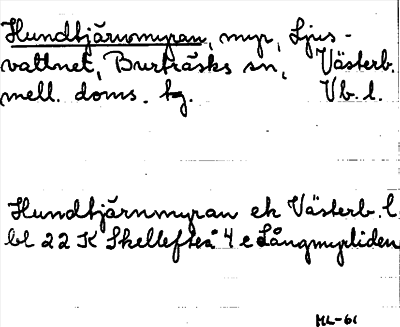 Hundtjärnmyran, myr, Ljus-
vattnet, Burträsks sn, Västerb.
mell. doms. tg. Vb. l.
Hundtjärnmyran ek Västerb. l.
bl 22 K Skellefteå 4 e Långmyrliden
ML-61